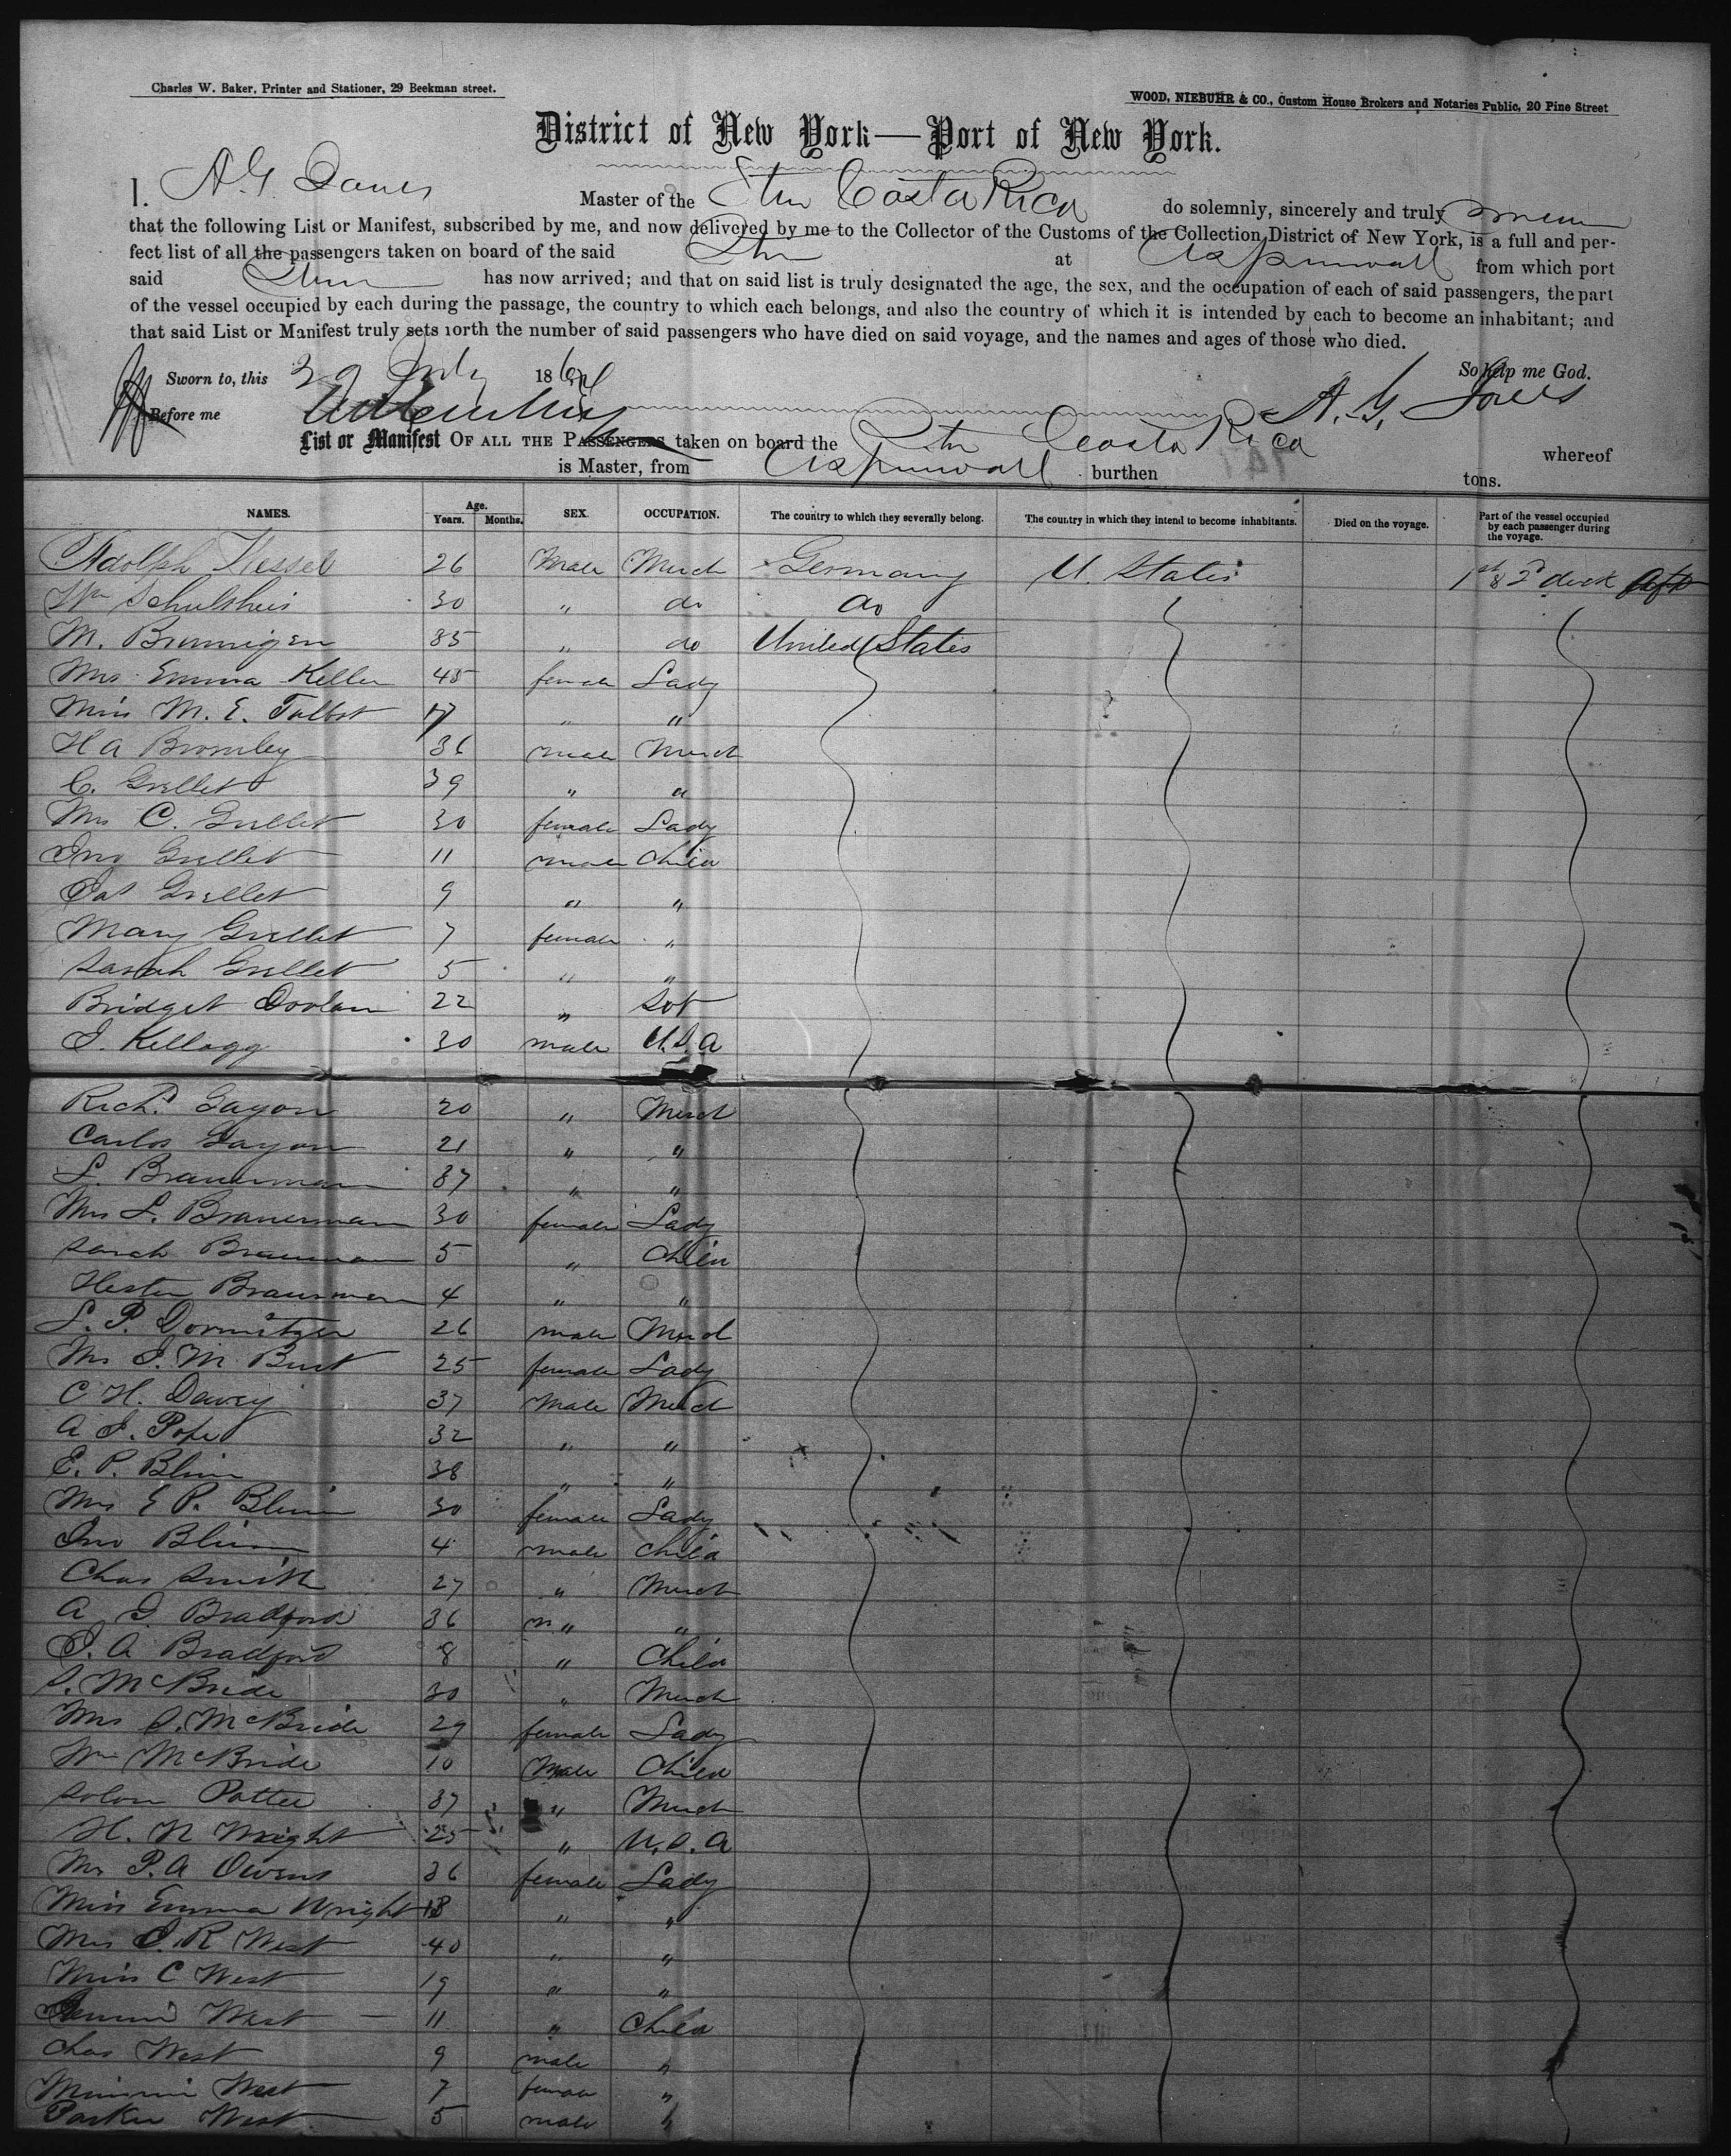 Charles W. Baker, Printer and Stationer, 29 Beekman street.
WOOD, NIEBUHR & CO., Custom House Brokers and Notaries Public, 20 Pine Street
District of New York—Port of New York.
I. A. G. Master of the Costa Rica do solemnly, sincerely and truly
that the following List or Manifest, subscribed by me, and now delivered by me to the Collector of the Customs of the Collection District of New York, is a full and per-
fect list of all the passengers taken on board of the said at Aspinwall from which port
said has now arrived; and that on said list is truly designated the age, the sex, and the occupation of each of said passengers, the part
of the vessel occupied by each during the passage, the country to which each belongs, and also the country of which it is intended by each to become an inhabitant; and
that said List or Manifest truly sets forth the number of said passengers who have died on said voyage, and the names and ages of those who died.
Sworn to, this 29 July 186 So help me God.
Before me A. G.
List or Manifest OF ALL THE PASSENGERS taken on board the Costa Rica whereof
is Master, from Aspinwall burthen tons.
NAMES. Age. Years. Months. SEX. OCCUPATION. The country to which they severally belong. The country in which they intend to become inhabitants. Died on the voyage. Part of the vessel occupied by each passenger during the voyage.
Adolph 26 Male Merch Germany U. States 1st & 2d deck Aft
Wm Schulsheis 30 " do do
M. 35 " do United States
Mrs Emma Keller 45 female Lady
Miss M. E. Talbot 17 " "
H A Bromley 36 male Merch
C. Grellet 39 " "
Mrs C. Grellet 30 female Lady
Jno Grellet 11 male Child
Grellet 9 " "
Mary Grellet 7 female "
Sarah Grellet 5 " "
Bridget Doolan 22 "
J. Kellogg 30 male U.S.A
Richd Gayon 20 " Merch
Carlos Gayon 21 " "
L. Braverman 37 " "
Mrs L. Braverman 30 female Lady
Sarah Braverman 5 " Child
Hester Braverman 4 " "
L. P. Dormitzer 26 male Merch
Mrs J. M. Burt 25 female Lady
C H. Davey 37 Male Merch
A J. Pope 32 " "
E. P. Blinn 38 " "
Mrs E P. Blinn 30 female Lady
Jno Blinn 4 male Child
Chas Smith 27 " Merch
A J Bradford 36 m " "
J. A Bradford 8 " Child
S. McBride 30 " Merch
Mrs S. McBride 29 female Lady
Wm McBride 10 Male Child
Solon Pattee 37 " Merch
H. N Wright 25 " U.S.A
Mrs P. A Owens 36 female Lady
Miss Emma Wright 18 " "
Mrs J. R West 40 " "
Miss C West 19 " "
West 11 " Child
Chas West 9 male "
Minnie West 7 female "
Parker West 5 male "